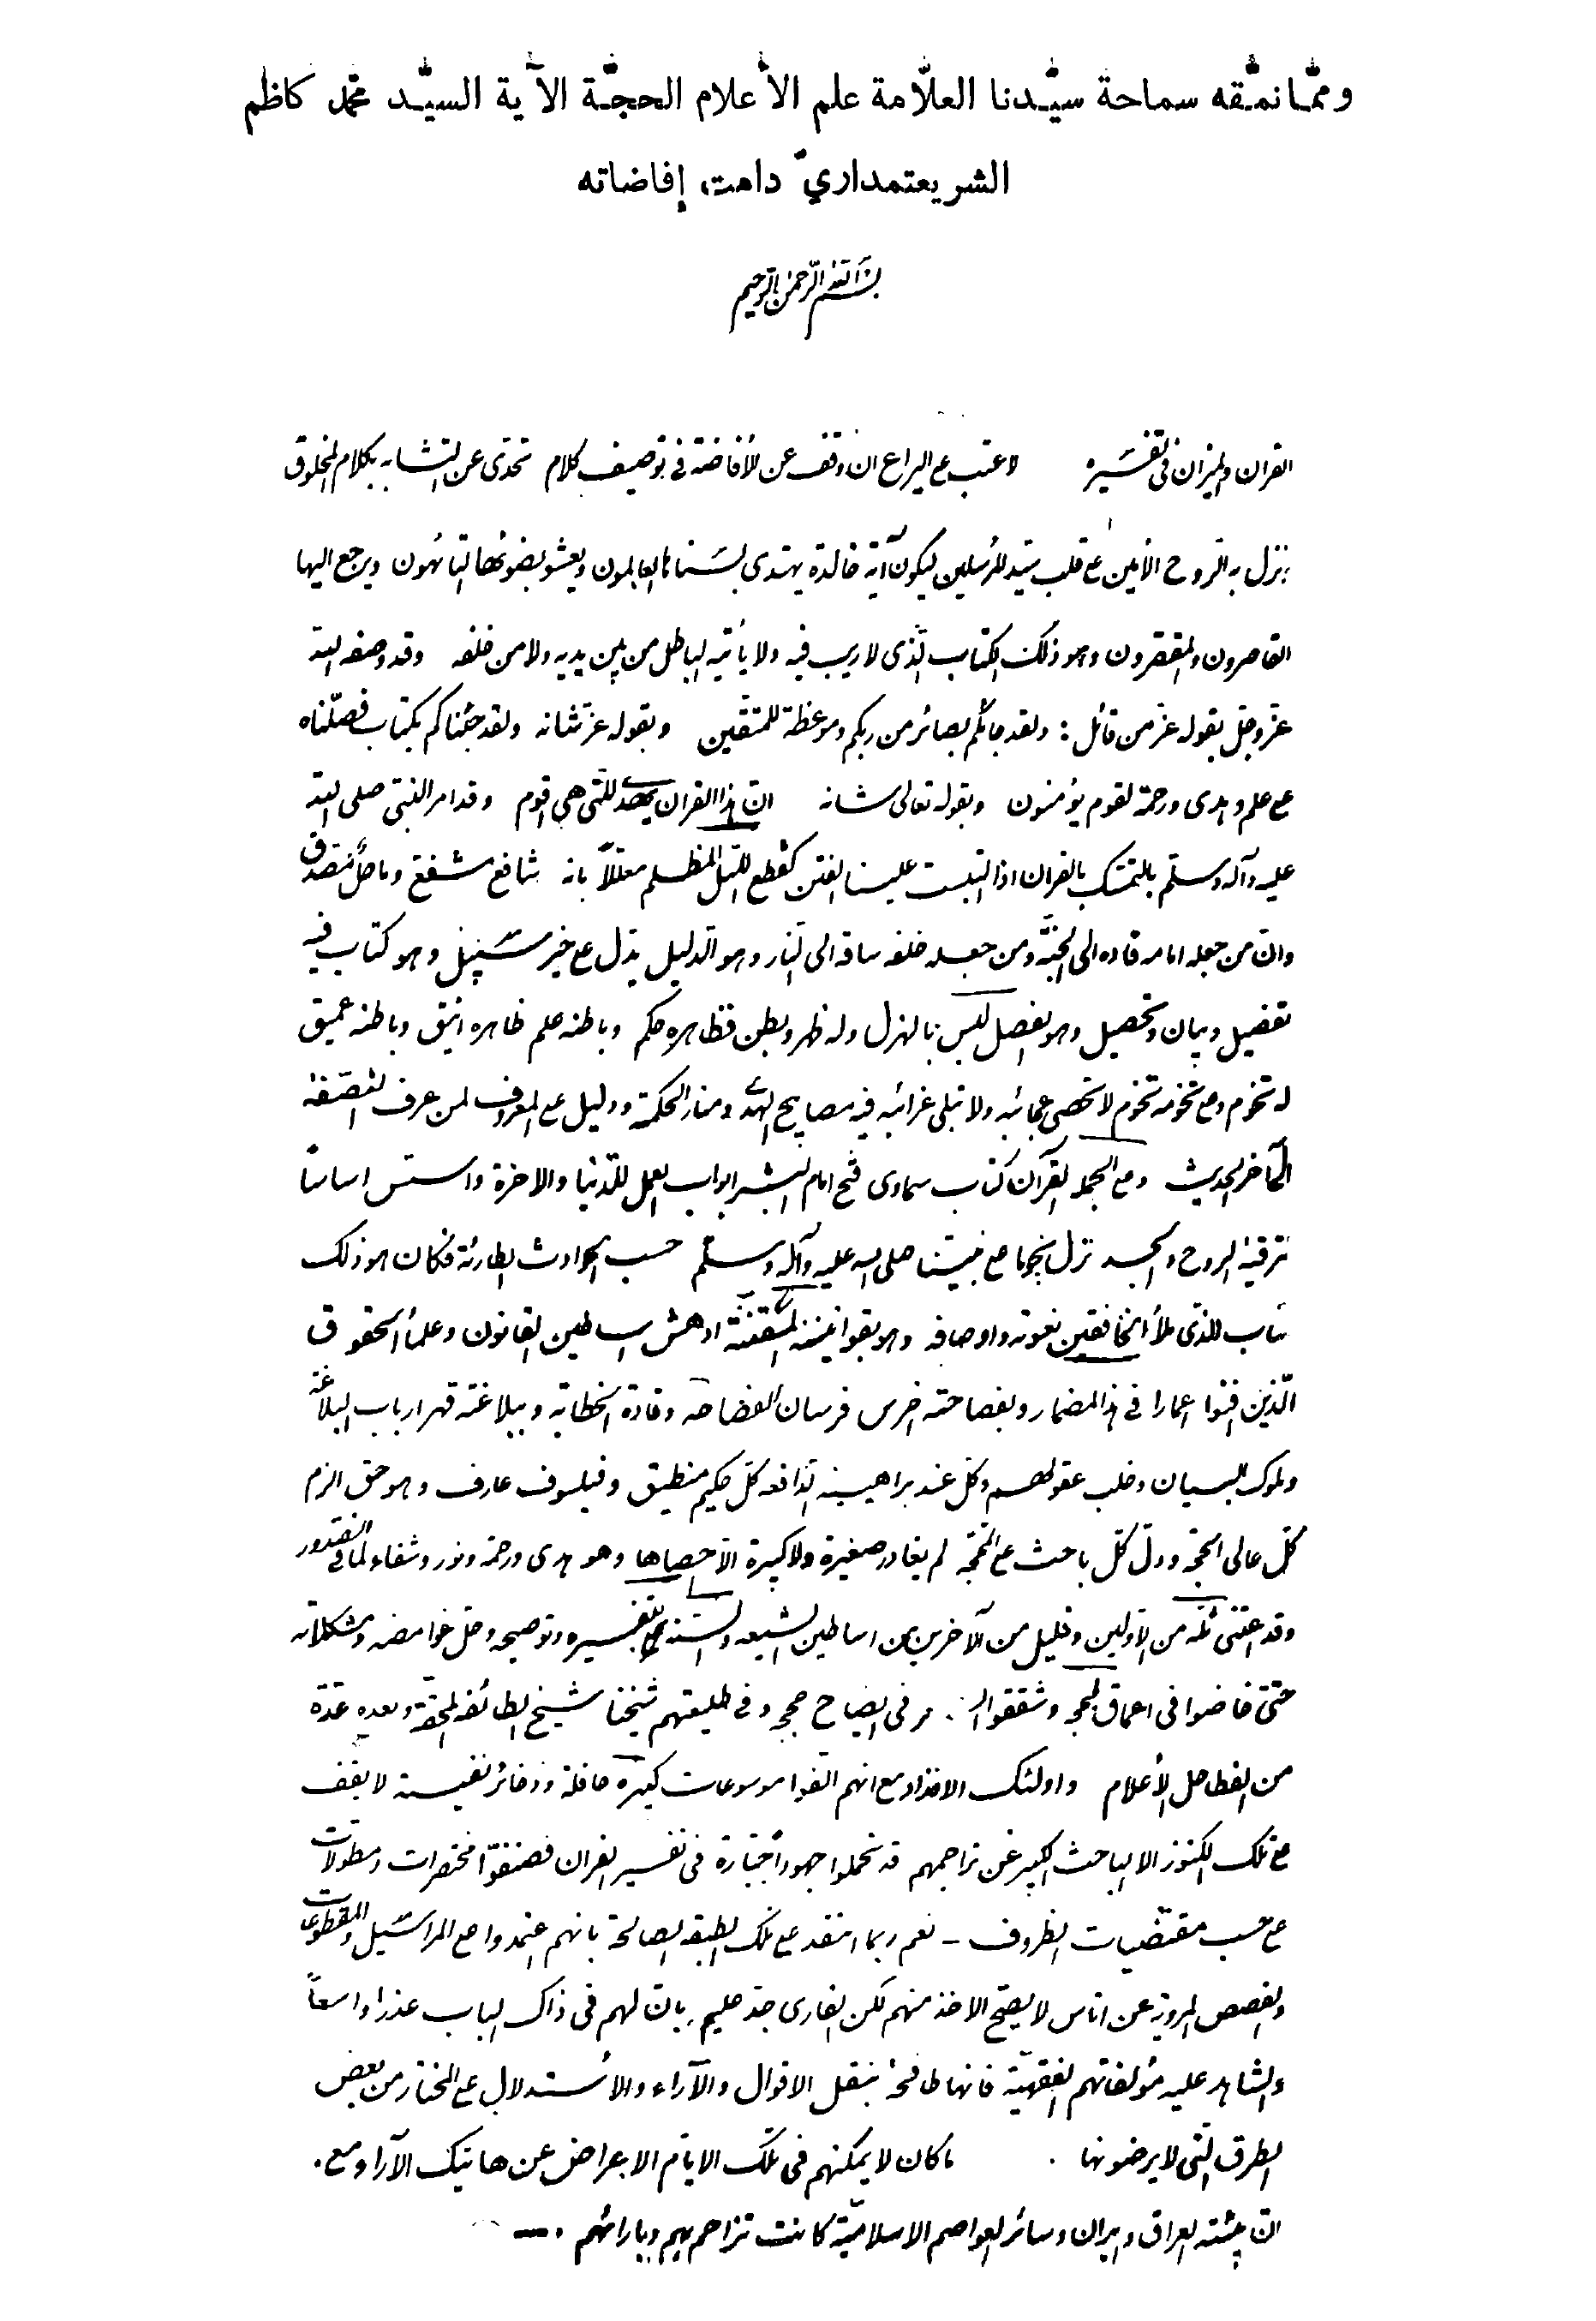 وممّا نمّقه سماحة سيّدنا العلّامة علم الأعلام الحجّة الآية السيّد محمّد كاظم
الشريعتمداريّ دامت إفاضاته
بسم الله الرّحمن الرّحيم
القران والميزان فى تفسيره لا عتب ع اليراع ان وقف عن الأفاضة فى توصيف كلام تحدى عن التشابه بكلام المخلوق
نزل به الروح الأمين ع قلب سيد المرسلين ليكون آية خالدة يهتدى بسناها العالمون ويعشو بضوئها التائهون ويرجع اليها
القاصرون والمقصرون وهو ذلك الكتاب الّذى لاريب فيه ولا يأتيه الباطل من بين يديه ولا من خلفه وقد وصفه الله
عزّ وجلّ بقوله عزّ من قائل : ولقد جائكم بصائر من ربكم وموعظة للمتقين وبقوله عزّ شانه ولقد جئناكم بكتاب فصّلناه
ع علم وهدى ورحمة لقوم يؤمنون وبقوله تعالى شانه انّ هذا القران يهدى للّتى هى اقوم وقد امر النبّى صلى الله
عليه وآله وسلّم بالتمسّك بالقران اذا التبست علينا الفتن كقطع اللّيل المظلم معللاً بانه شافع مشفع وماحل مصدق
وانّ من جعله امامه قاده الى الجنّة ومن جعله خلفه ساقه الى النّار وهو الدّليل يدّل ع خير سبيل وهو كتاب فيه
تفصيل وبيان وتحصيل وهو الفصل ليس بالهزل وله ظهر وبطن فظاهره حكم وباطنه علم ظاهره انيق وباطنه عميق
له تخوم وع تخومه تخوم لا تحصى عجائبه ولا تبلى غرائبه فيه مصابيح الهدى ومنار الحكمة ودليل ع المعروف لمن عرف الصّفة
الى آخر الحديث وع الجملة القرآن كتاب سماوى فتح امام البشر ابواب العمل للدّنيا والاخرة واسّس اساسا
ترقية الروح والجسد نزل نجوما ع نبيّنا صلى الله عليه وآله وسلّم حسب الحوادث الطارئة فكان هو ذلك
الّذى ملأ الخافقين نعوته واوصافه وهو بقوانينه المتقنة ادهش اساطين القانون وعلمأ الحقوق
الّذين افنوا اعمارا فى هذا المضمار وبفصاحته اخرس فرسان الفصاحه وقادة الخطابه وببلاغته قهر ارباب البلاغة
وملوك البيان وخلب عقولهم وكلّ عند براهينه الدّافعه كلّ حكيم منطيق وفيلسوف عارف وهو حق الزم
كلّ عالى الحجّة ودلّ كلّ باحث ع المحجّة لم يغادر صغيرة ولا كبيرة الاّ احصاها وهو هدى ورحمة ونور وشفاء لما فى الصّدور
وقد اعتنى ثلّة من الاولين وقليل من الآخرين من اساطين الشيعه والسّنه بتفسيره وتوضيحه وحل غوامضه ومشكلاته
حتّى خاضوا فى اعماق اللجج وشققوا فى ايضاح حججه وفى طليعتهم شيخنا شيخ الطائفه المحقّة وبعده عدّة
من الفطاحل الأعلام واولئك الافذاذ مع انهم الّفوا موسوعات كبيرة حافلة وذخائر نفيسة لا يقف
ع تلك الكنوز الا الباحث الكبير عن تراجمهم قد تحملوا جهوداً جبّارة فى تفسير القران فصنفوا مختصرات ومطولات
ع حسب مقتضيات الظروف - نعم ربما انتقد ع تلك الطبقه الصالحة بانهم اعتمدوا ع المراسيل والمقطوعات
والقصص المروية عن اناس لا يصّح الاخذ منهم لكن القارى جدّ عليم بانّ لهم فى ذاك الباب عذرا واسعاً
والشاهد عليه مؤلفاتهم الفقهيّة فانها طافحة بنقل الاقوال والآراء والأستدلال ع المختار من بعض
الطرق الّتى لا يرضونها كان لا يمكنهم فى تلك الايّام الاعراض عن هاتيك الآراء ومع
انّ بيئته العراق وايران وسائر العواصم الاسلاميّة كانت تزاحم بهم وبارائهم